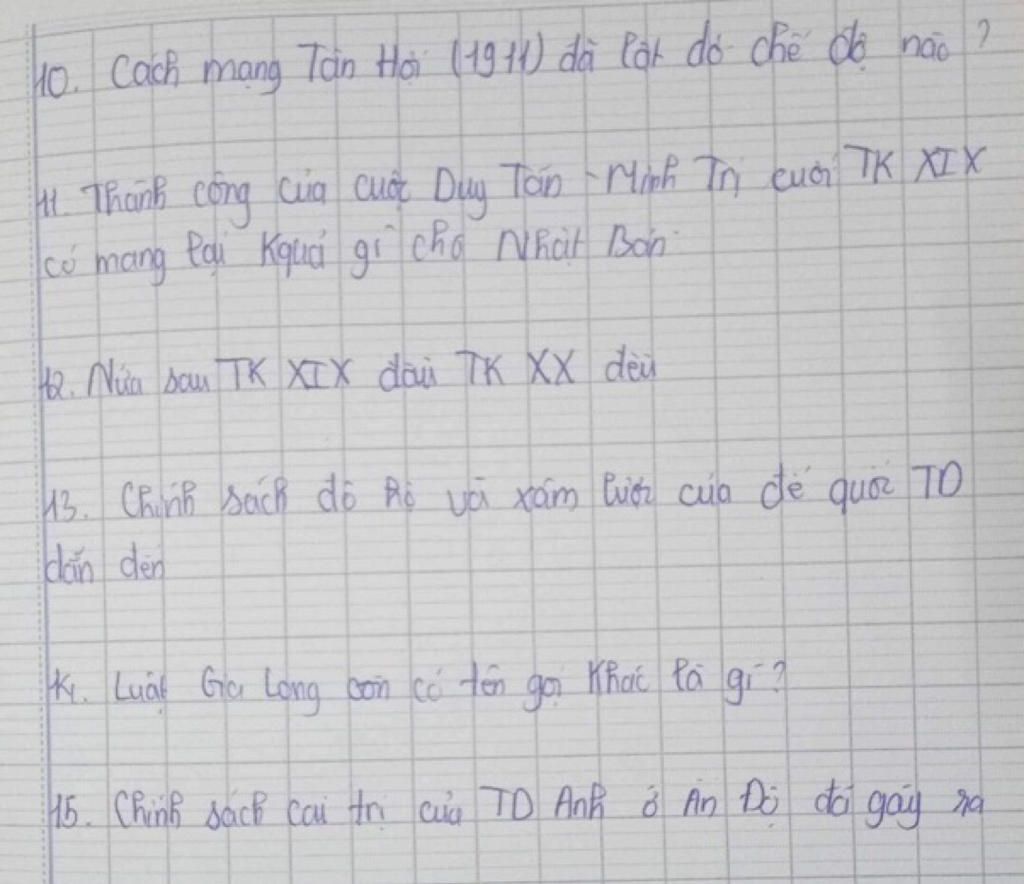 10. Cách mạng Tân Hợi (1911) đã lật đổ chế độ nào ?
11. Thành công của cuộc Duy Tân Minh Trị cuối TK XIX
có mang lại Kquả gì cho Nhật Bản
12. Nửa sau TK XIX đầu TK XX đều
13. Chính sách đô hộ và xâm lược của đế quốc TD
dẫn đến
14. Luật Gia Long còn có tên gọi khác là gì ?
15. Chính sách cai trị của TD Anh ở Ấn Độ đã gây ra